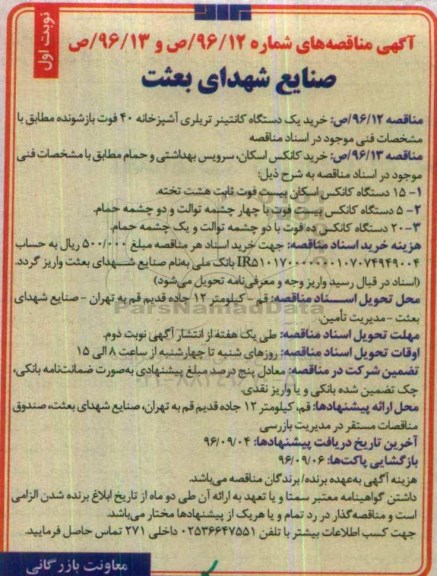 نوبت اول
آگهی مناقصه‌های شماره ۹۶/۱۲/ص و ۹۶/۱۳/ص
صنایع شهدای بعثت
مناقصه ۹۶/۱۲/ص: خرید یک دستگاه کانتینر تریلری آشپزخانه ۴۰ فوت بازشونده مطابق با
مشخصات فنی موجود در اسناد مناقصه
مناقصه ۹۶/۱۳/ص: خرید کانکس اسکان، سرویس بهداشتی و حمام مطابق با مشخصات فنی
موجود در اسناد مناقصه به شرح ذیل:
۱- ۱۵ دستگاه کانکس اسکان بیست فوت ثابت هشت تخته.
۲- ۵ دستگاه کانکس بیست فوت با چهار چشمه توالت و دو چشمه حمام.
۳- ۲۰ دستگاه کانکس ده فوت با دو چشمه توالت و یک چشمه حمام.
هزینه خرید اسناد مناقصه: جهت خرید اسناد هر مناقصه مبلغ ۵۰۰/۰۰۰ ریال به حساب
بانک ملی به‌نام صنایع شهدای بعثت واریز گردد.
(اسناد در قبال رسید واریز وجه و معرفی‌نامه تحویل می‌شود)
محل تحویل اسناد مناقصه: قم - کیلومتر ۱۲ جاده قدیم قم به تهران - صنایع شهدای
بعثت - مدیریت تأمین.
مهلت تحویل اسناد مناقصه: طی یک هفته از انتشار آگهی نوبت دوم.
اوقات تحویل اسناد مناقصه: روزهای شنبه تا چهارشنبه از ساعت ۸ الی ۱۵
تضمین شرکت در مناقصه: معادل پنج درصد مبلغ پیشنهادی به‌صورت ضمانت‌نامه بانکی،
چک تضمین شده بانکی و یا واریز نقدی.
محل ارائه پیشنهادها: قم، کیلومتر ۱۲ جاده قدیم قم به تهران، صنایع شهدای بعثت، صندوق
مناقصات مستقر در مدیریت بازرسی
آخرین تاریخ دریافت پیشنهادها: ۹۶/۰۹/۰۴
بازگشایی پاکت‌ها: ۹۶/۰۹/۰۶
هزینه آگهی به‌عهده برنده/برندگان مناقصه می‌باشد.
داشتن گواهینامه معتبر سمتا و یا تعهد به ارائه آن طی دو ماه از تاریخ ابلاغ برنده شدن الزامی
است و مناقصه‌گذار در رد تمام و یا هریک از پیشنهادها مختار می‌باشد.
جهت کسب اطلاعات بیشتر با تلفن ۰۲۵۳۶۶۴۷۵۵۱ داخلی ۲۷۱ تماس حاصل فرمایید.
معاونت بازرگانی
ParsNamadData